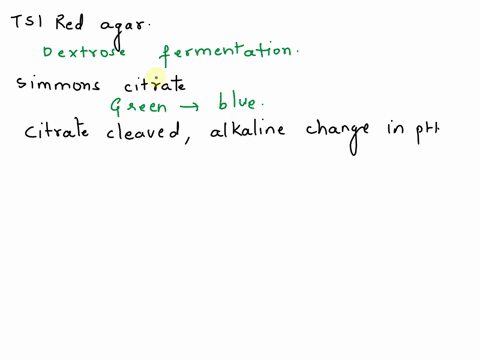 TSI Red agar.
Dextrose fermentation.
Simmons citrate
Green → blue.
Citrate cleaved, alkaline change in pH